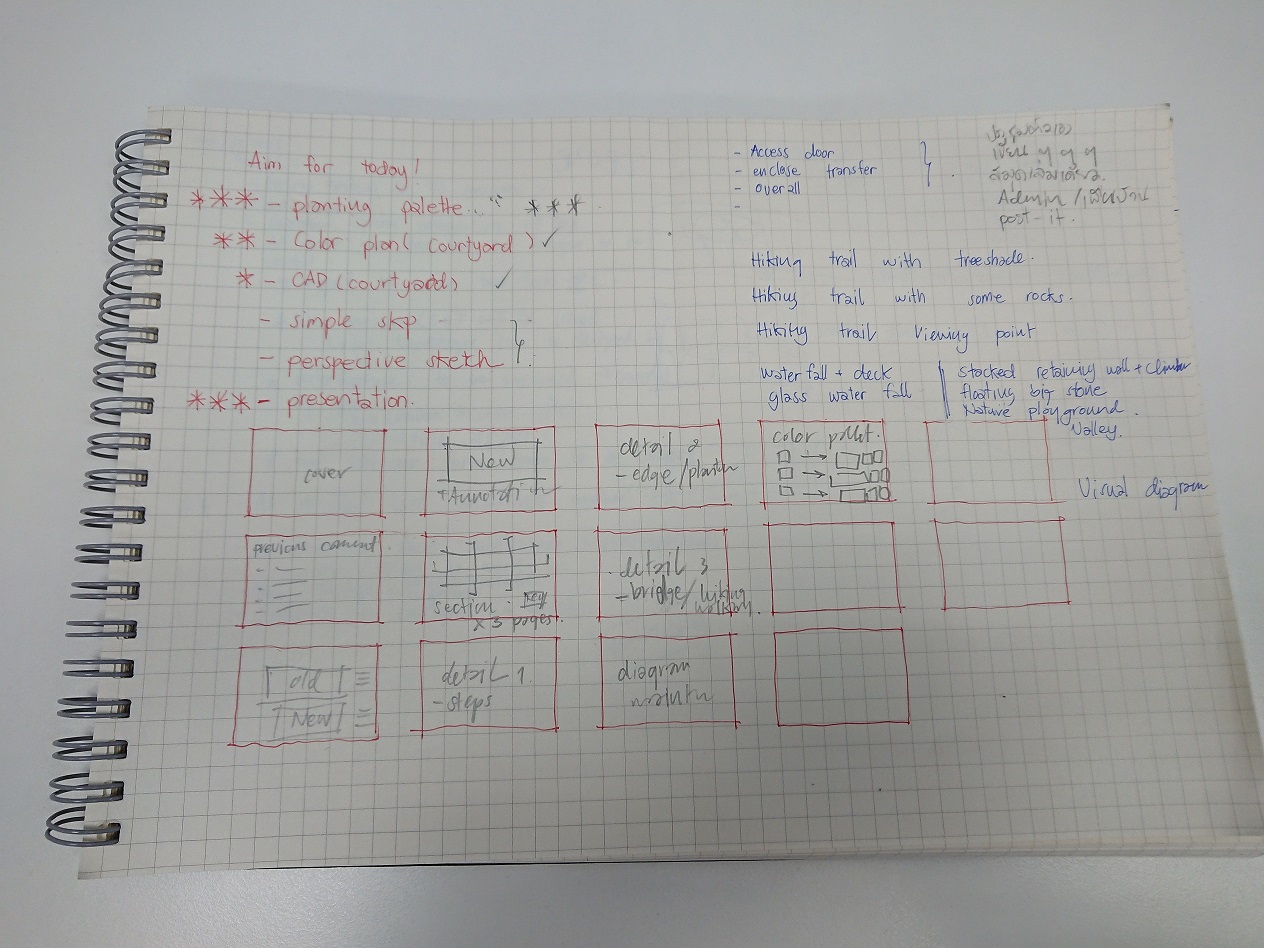 Aim for today!
*** - planting palette.. " ***
** - Color plan( courtyard ) ✓
* - CAD (courtyard) ✓
- simple skp
- perspective sketh
*** - presentation.
- Access door
- enclose transfer
- overall
-
Admin /
post-it.
Hiking trail with treeshade.
Hiking trail with some rocks.
Hiking trail viewing point
waterfall + deck
glass water fall
stacked retaining wall + climber
floating big stone
Nature playground.
Valley.
Visual diagram
cover
New
+ Annotati
detail 2
- edge/planter
color pallet.
previous comment.
section. key
x 3 pages.
detail 3
- bridge/hiking
walking.
old
New
detail 1.
- steps
diagram